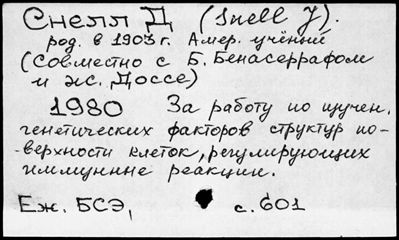 Снелл Д (Snell J).
род. в 1903 г. Амер. учёный
(Совместно с Б. Бенасеррафом
и ж. Доссе)
1980 За работу по изучен.
генетических факторов структур по-
-верхности клеток, регулирующих
иммунные реакции.
Еж. БСЭ, с. 601